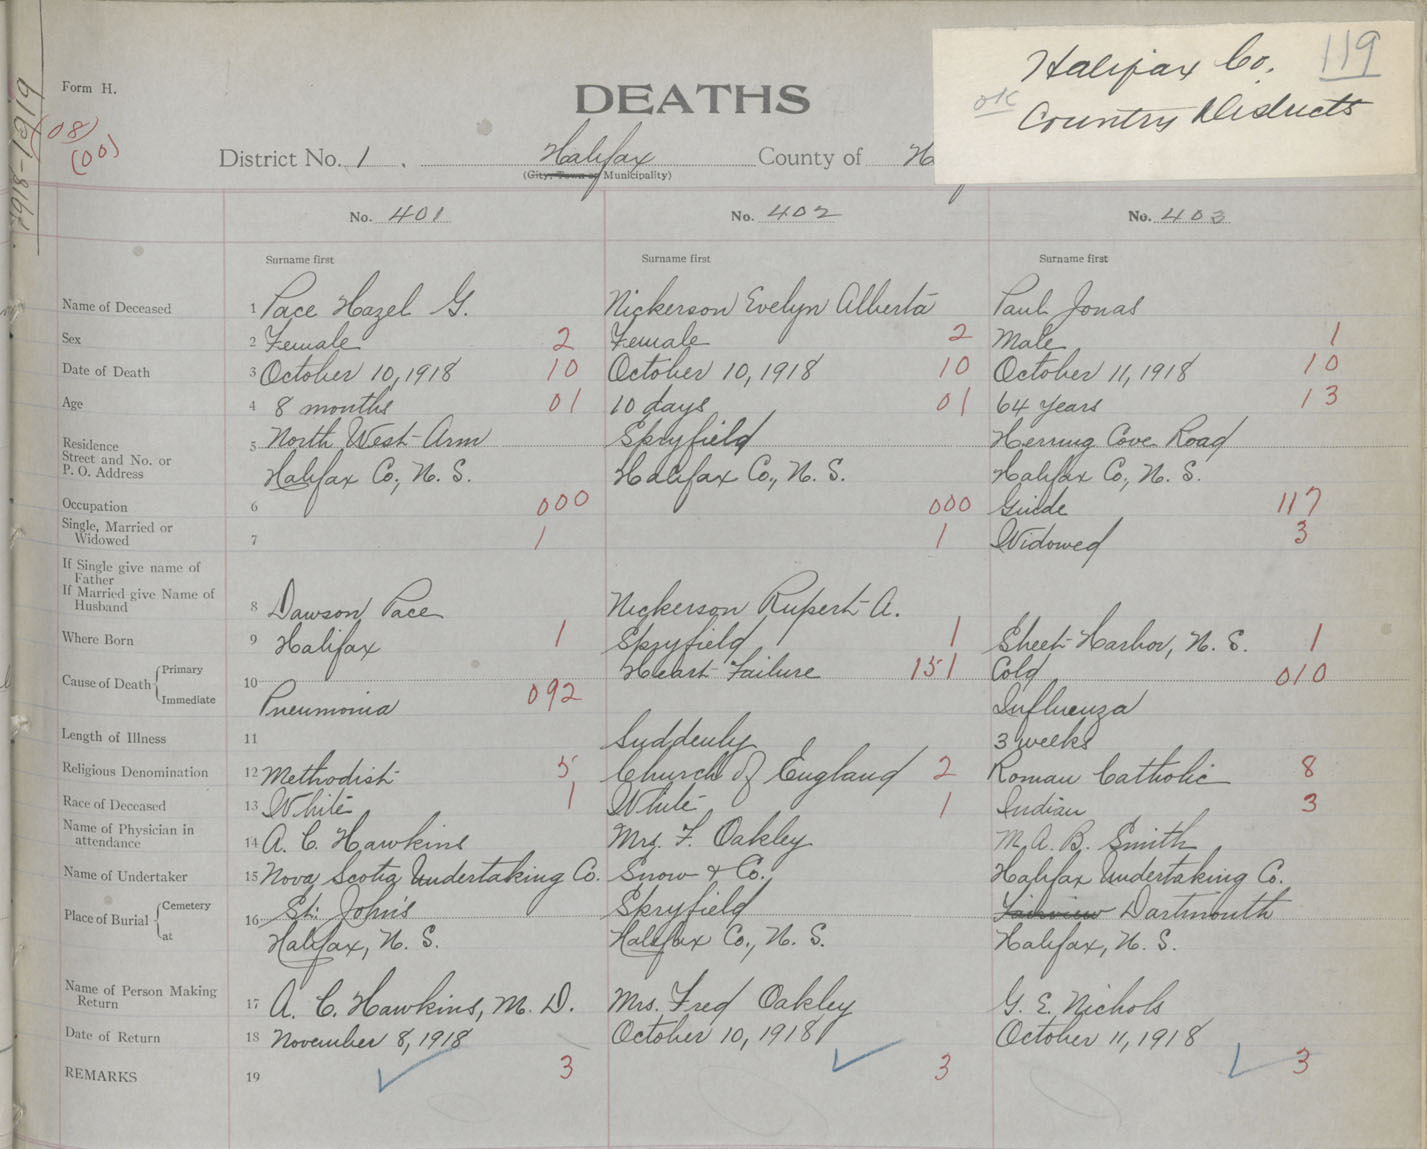 1918-1919
Form H.
(08)
(00)
DEATHS
Halifax Co. 119
OK
Country Districts
District No. 1. Halifax County of Ha
(City, Town or Municipality)
No. 401 No. 402 No. 403
Surname first Surname first Surname first
Name of Deceased 1 Pace Hazel G. Nickerson Evelyn Alberta Paul Jonas
Sex 2 Female 2 Female 2 Male 1
Date of Death 3 October 10, 1918 10 October 10, 1918 10 October 11, 1918 10
Age 4 8 months 01 10 days 01 64 years 13
Residence 5 North West Arm Spryfield Herring Cove Road
Street and No. or
P. O. Address Halifax Co., N. S. Halifax Co., N. S. Halifax Co., N. S.
Occupation 6 000 000 Guide 117
Single, Married or
Widowed 7 1 1 Widowed 3
If Single give name of
Father
If Married give Name of
Husband 8 Dawson Pace Nickerson Rupert A.
Where Born 9 Halifax 1 Spryfield 1 Sheet Harbor, N. S. 1
Cause of Death Primary 10 Heart Failure 151 Cold 010
Immediate Pneumonia 092 Influenza
Length of Illness 11 Suddenly 3 weeks
Religious Denomination 12 Methodist 5 Church of England 2 Roman Catholic 8
Race of Deceased 13 White 1 White 1 Indian 3
Name of Physician in
attendance 14 A. C. Hawkins Mrs. F. Oakley M. A. B. Smith
Name of Undertaker 15 Nova Scotia Undertaking Co. Snow & Co., Halifax Undertaking Co.
Place of Burial Cemetery 16 St. John's Spryfield Fairview Dartmouth
at Halifax, N. S. Halifax Co., N. S. Halifax, N. S.
Name of Person Making
Return 17 A. C. Hawkins, M. D. Mrs. Fred Oakley G. E. Nichols
Date of Return 18 November 8, 1918 October 10, 1918 October 11, 1918
REMARKS 19 3 3 3